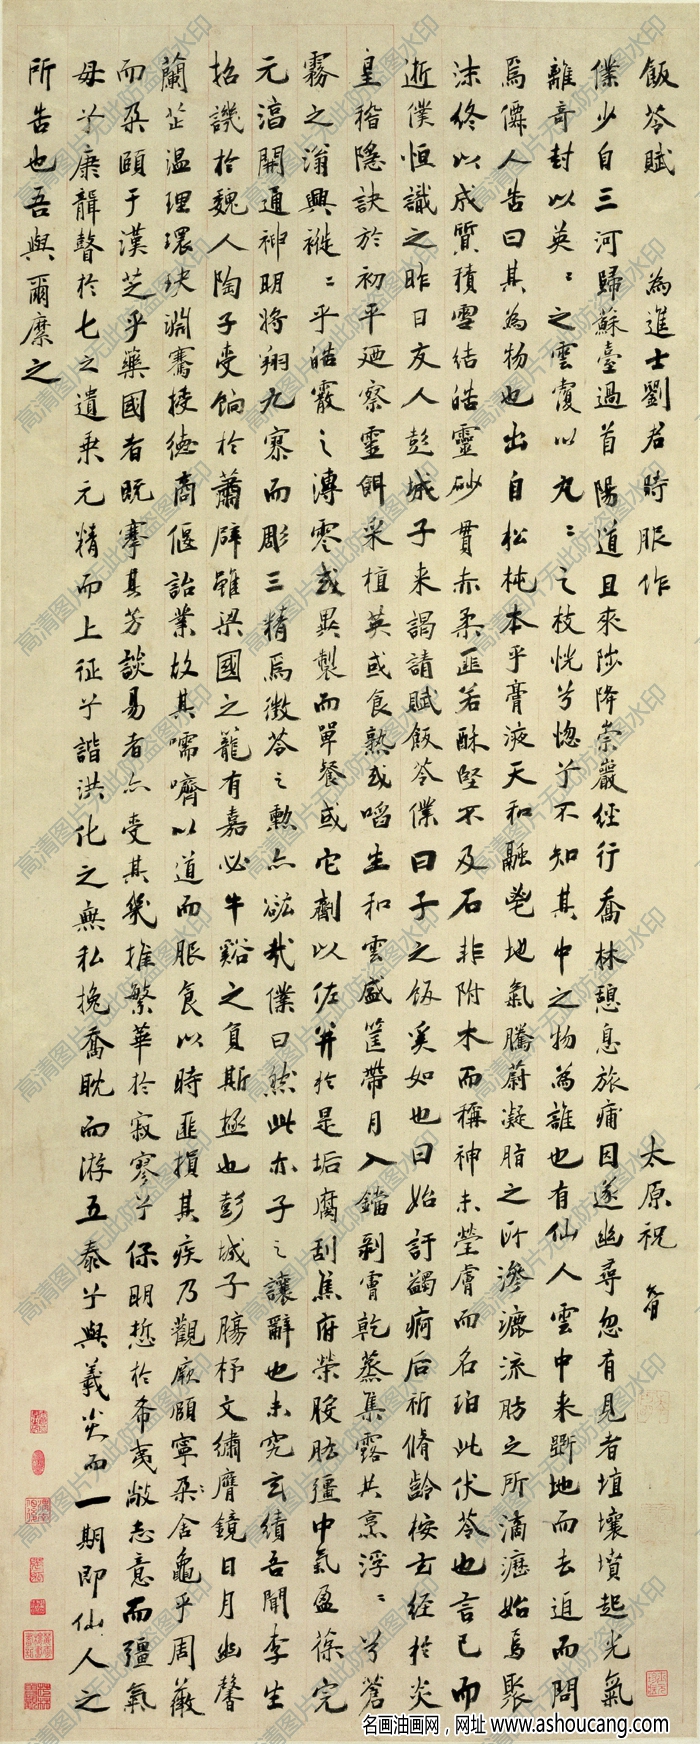 飯苓賦　為進士劉君時服作　太原祝
僕少自三河歸蘇臺過首陽道且來陟降崇巖經行喬林憩息旅痡因遂幽尋忽有見者埴壤墳起光氣
離奇封以英〻之雲覆以丸〻之枝恍兮惚兮不知其中之物為誰也有仙人雲中来斲地而去迫而問
焉僊人告曰其為物也出自松杶本乎膏液天和融鬯地氣騰蔚凝脂之所滲漉流肪之所滴瀝始焉聚
沫終以成質積雪結皓靈砂貫赤柔匪若酥堅不及石非附木而稱神未瑩膚而名珀此伏苓也言已而
逝僕恒識之昨日友人彭城子来謁請賦飯苓僕曰子之飯奚如也曰始訏蠲痾后祈脩齡桉玄經於炎
皇稽隱訣於初平廼察靈餌采植英或食熟或啗生和雲盛筐帶月入鐺剝膚乾蒸集露共烹浮〻兮蒼
霧之滃興襁〻乎皓霰之漙零或異製而單餐或它劑以佐并於是垢腐刮焦府榮胺胳彊中氣盈葆完
元滀開通神明將翔九寨而彫三精焉微苓之勲亦竑哉僕曰然此亦子之讓辭也未究玄績吾聞李生
招譏於魏人陶子受餉於蕭辟雖梁國之籠有嘉必牛谿之負斯極也彭城子腸杼文繡膺鏡日月幽馨
蘭芷温理環玦淵騫接德商偃詒業故其嚅嚌以道而服食以時匪損其疾乃觀厥頤寧朶舍龜乎周薇
而朶頤于漢芝乎藥國者既搴其芳談易者亦受其幾推繁華於寂寥兮保明悊於希夷敝志意而彊氣
毋兮康韻聲於七之遺乘元精而上征兮諧洪化之無私挽喬耽而游五泰兮與羲炎而一期即仙人之
所告也吾與爾縻之
高清图片无此防盗图水印
名画油画网，网址 www.ashoucang.com